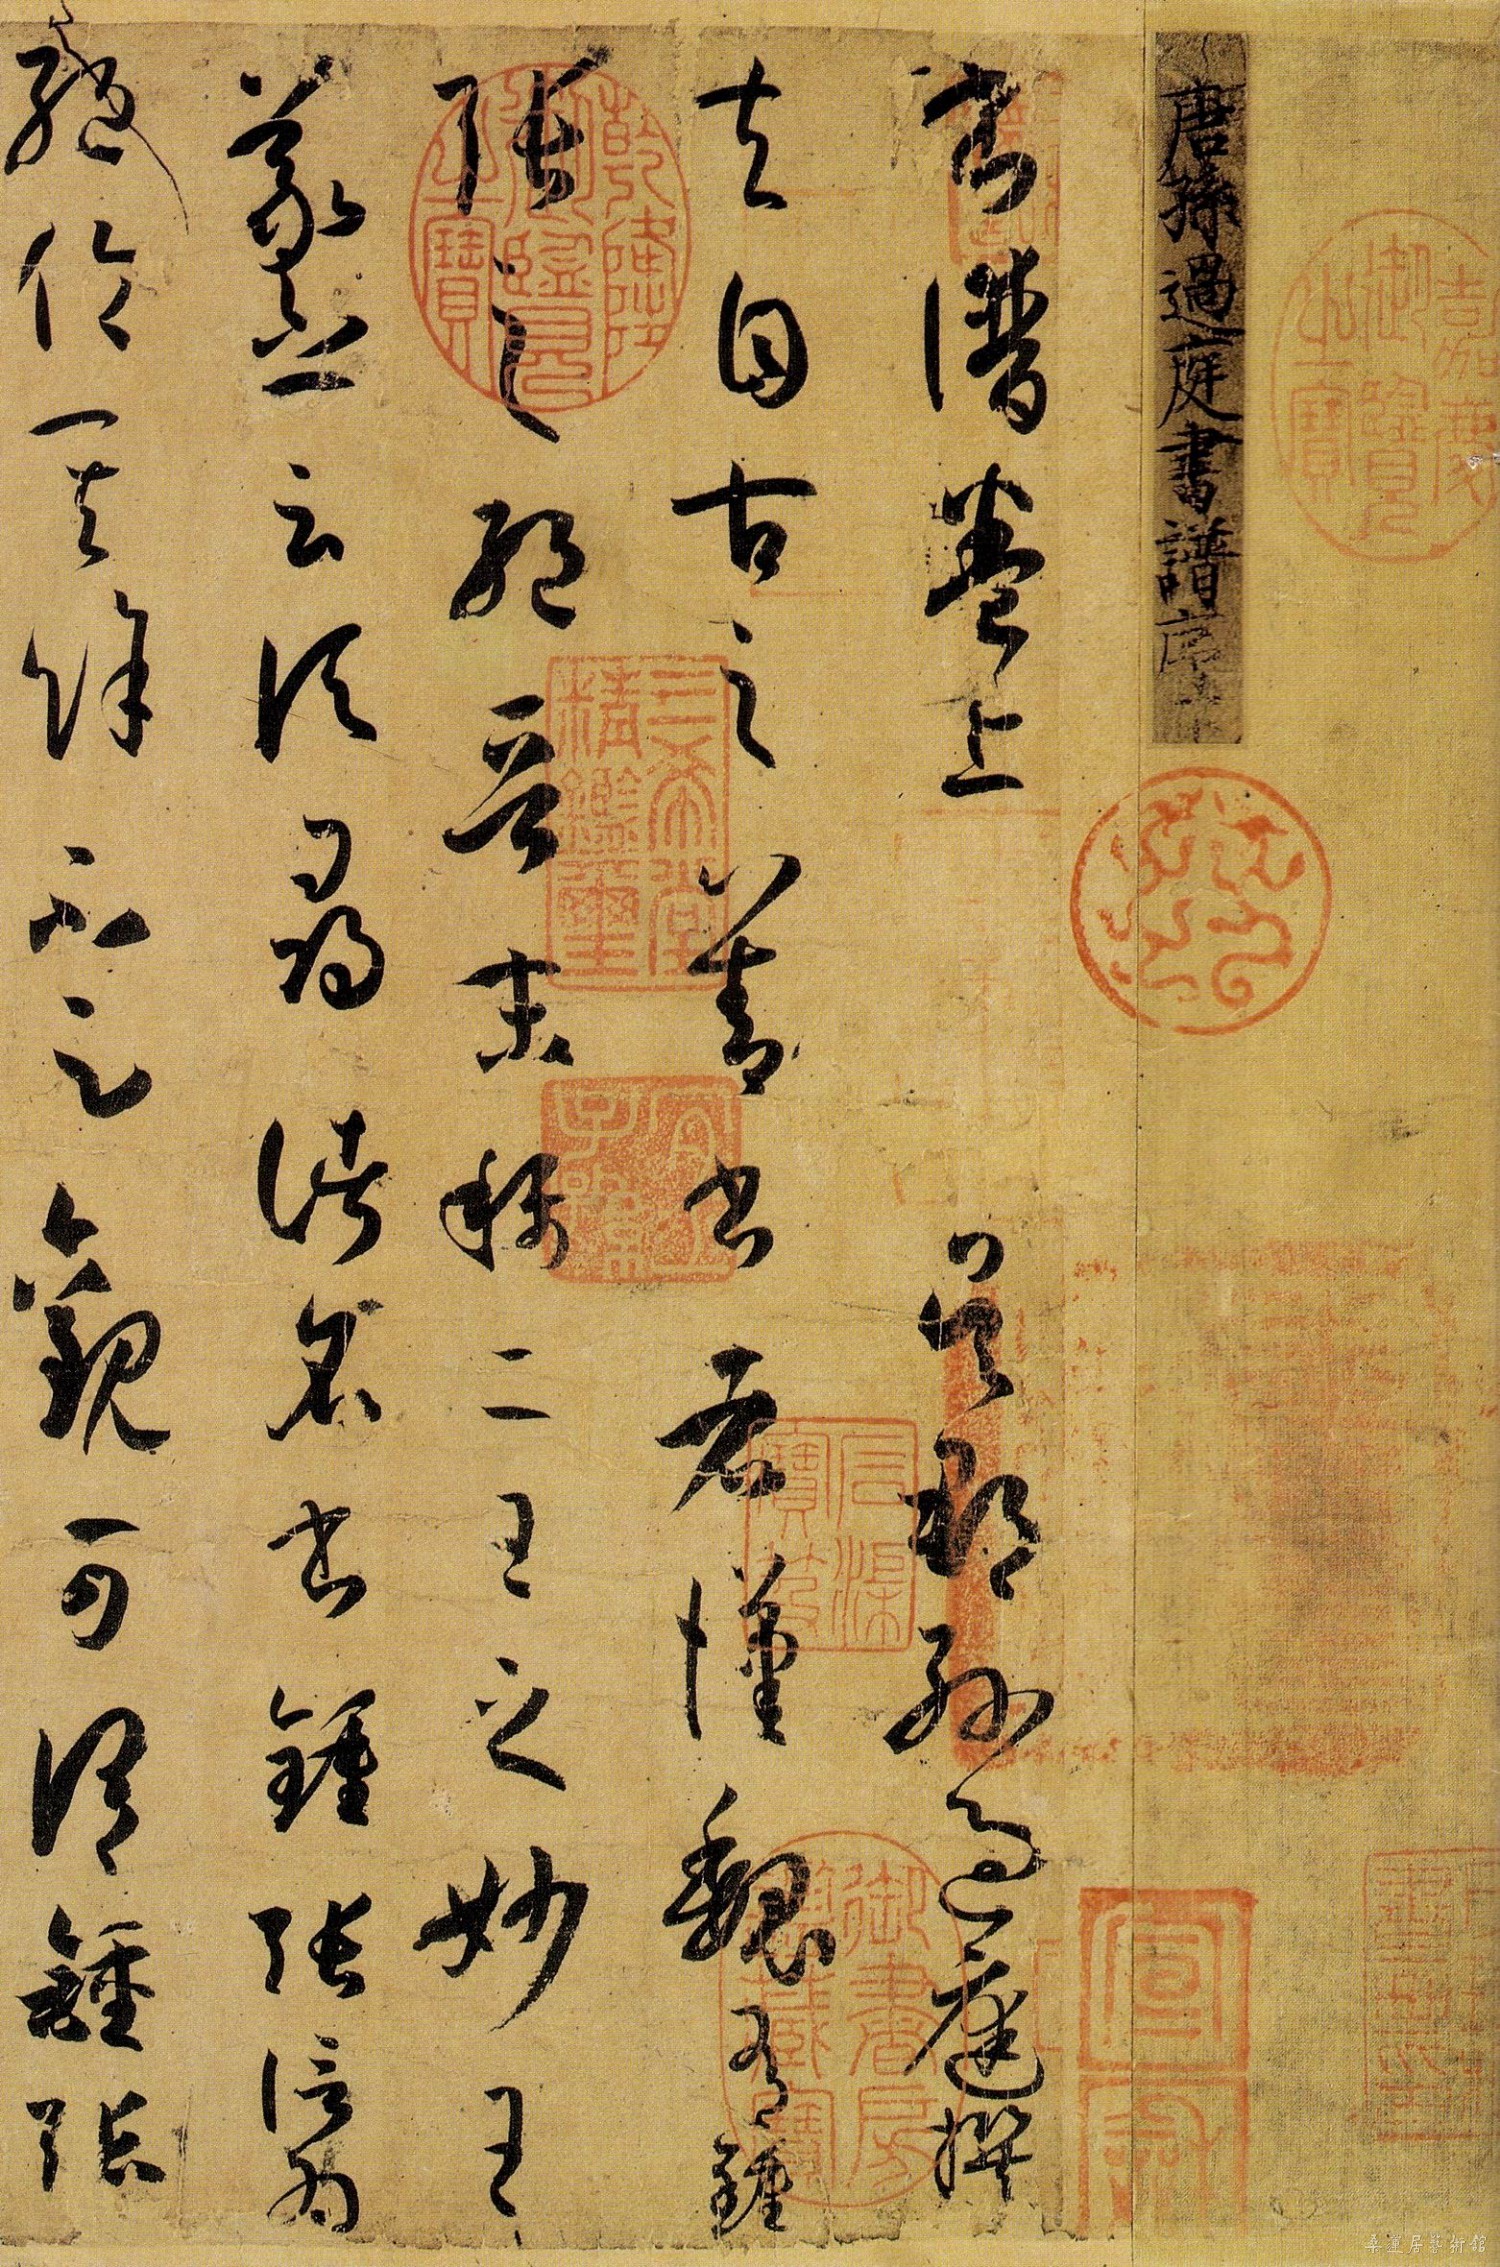 唐孫過庭書譜序
書譜卷上 吳郡孫過庭撰
夫自古之善書者漢魏有鍾
張之絕晉末稱二王之妙王
羲之云頃尋諸名書鍾張信為
絕倫其餘不足觀可謂鍾張
嘉慶御覽之寶
乾隆御覽之寶
三希堂精鑑璽
宣和
御書房鑑藏寶
石渠寶笈
桑蓮居藝術館